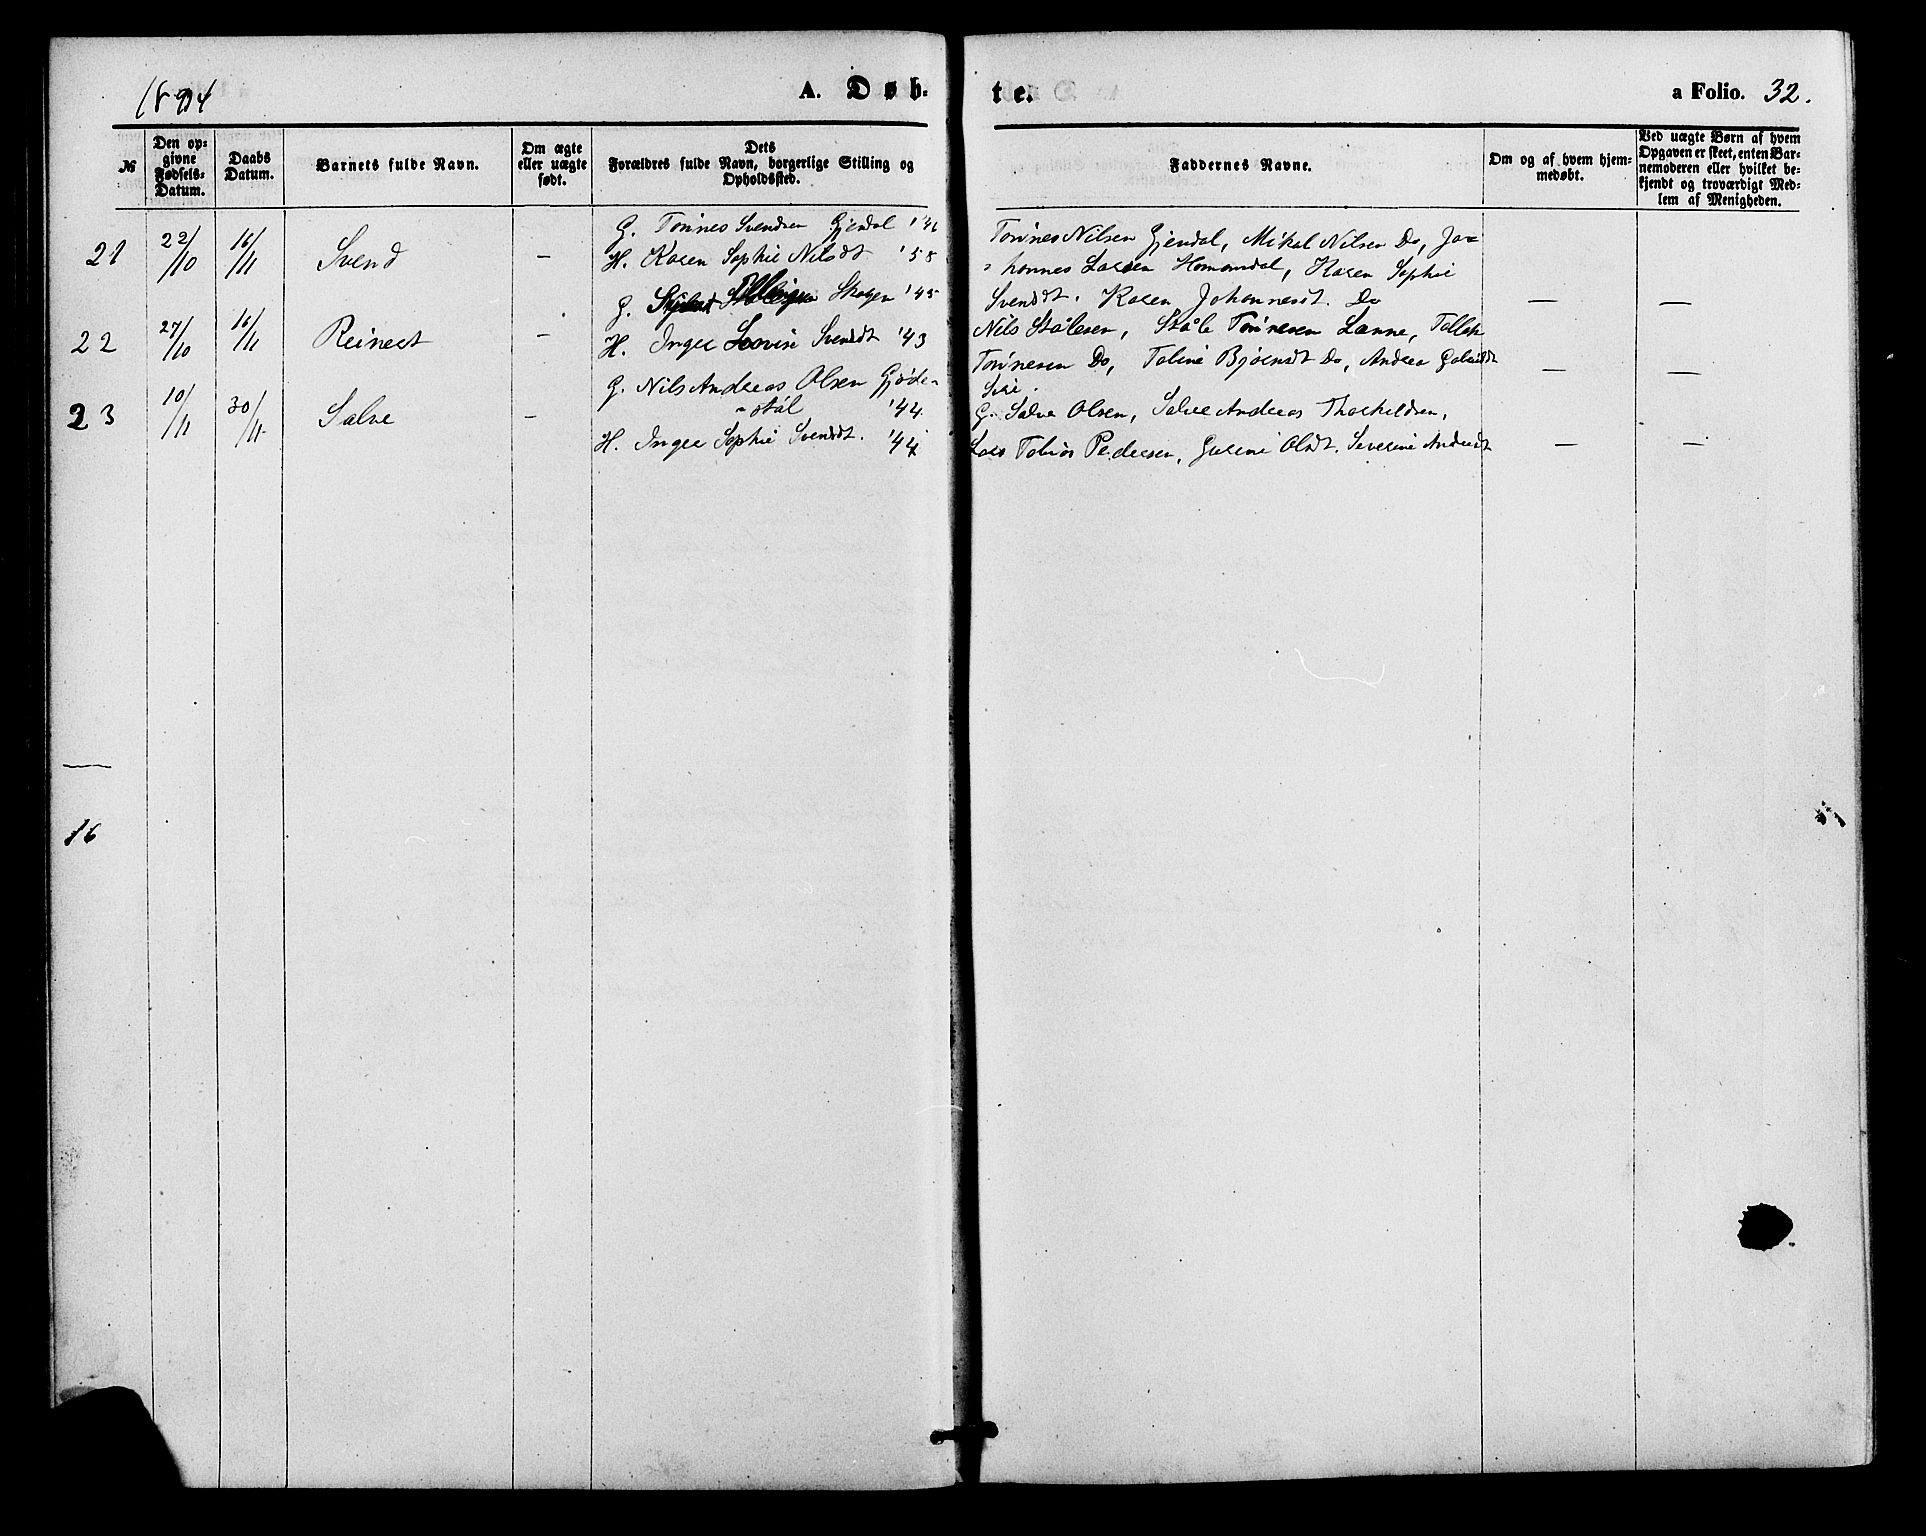 1894
A. Døb-
te.
a Folio. 32.
№
Den op-
givne
Fødsels-
Datum.
Daabs
Datum.
Barnets fulde Navn.
Om ægte
eller uægte
født.
Dets
Forældres fulde Navn, borgerlige Stilling og
Opholdssted.
Faddernes Navne.
Om og af hvem hjem-
medøbt.
Ved uægte Børn af hvem
Opgaven er skeet, enten Bar-
nemoderen eller hvilket be-
kjendt og troværdigt Med-
lem af Menigheden.
21
22/10
16/11
Svend
—
G. Tønnes Svendsen Gjendal
H. Karen Sophie Nilsdt '58
Tønnes Nilsen Gjendal, Mikal Nilsen Do, Jo=
=hannes Larsen Homandal, Karen Sophie
Svendsdt. Karen Johannesdt. Do
—
—
22
27/10
16/11
Reinert
—
G. Skogen '45
H. Inger Lovise Svendsdt '43
Nils Ståleen, Ståle Tønnesen Lanne, Tollak
Tønnesen Do, Toline Bjørnsdt Do, Andrea
—
—
23
10/11
30/11
Salve
—
G. Nils Andreas Olsen Gjøde-
-støl '44.
H. Inger Sophie Svendsdt. '44
G. Salve Olsen, Salve Andreas Thorkildsen,
Lars Tobias Pedersen, Gurine Olsdt. Severine Andersdt
—
—
—
16